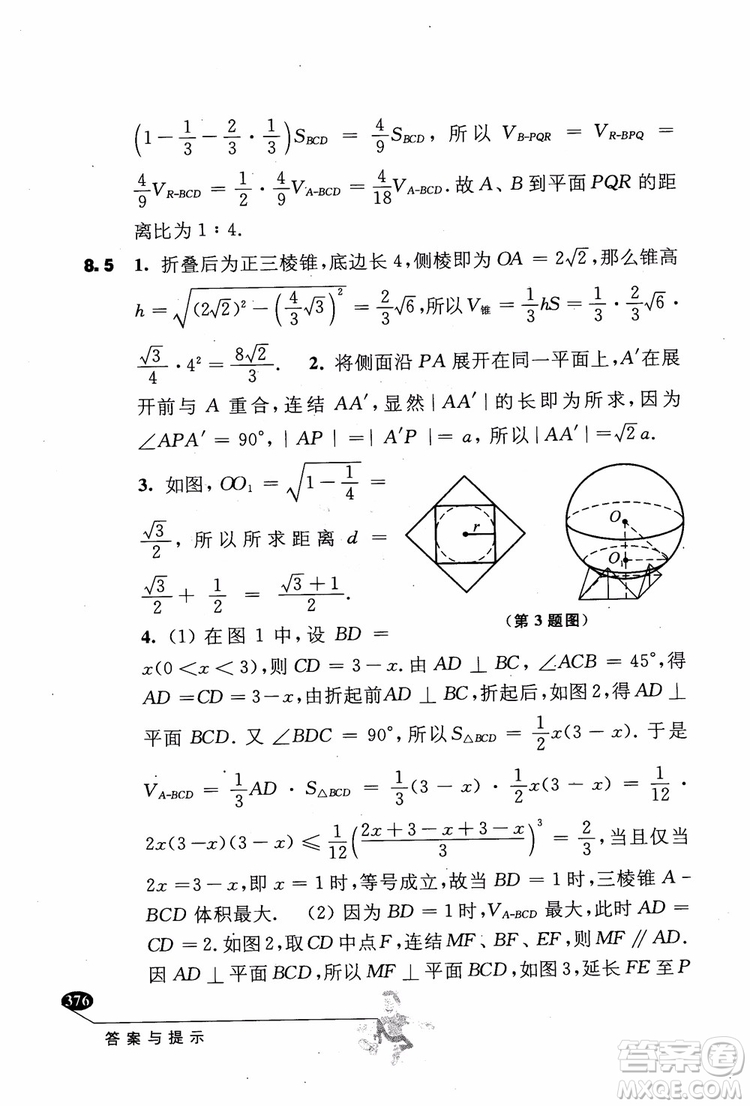 (1－1/3－2/3·1/3)S_BCD ＝ 4/9 S_BCD，所以 V_B-PQR ＝ V_R-BPQ ＝
4/9 V_R-BCD ＝ 1/2 · 4/9 V_A-BCD ＝ 4/18 V_A-BCD．故 A、B 到平面 PQR 的距
离比为 1∶4．
8.5 1. 折叠后为正三棱锥，底边长 4，侧棱即为 OA ＝ 2√2，那么锥高
h ＝ √((2√2)² － (4/3 √3)²) ＝ 2/3 √6，所以 V锥 ＝ 1/3 hS ＝ 1/3 · 2/3 √6 ·
√3/4 · 4² ＝ 8√2/3． 2. 将侧面沿 PA 展开在同一平面上，A′在展
开前与 A 重合，连结 AA′，显然|AA′|的长即为所求，因为
∠APA′ ＝ 90°，|AP| ＝ |A′P| ＝ a，所以|AA′| ＝ √2 a．
3. 如图，OO₁ ＝ √(1－1/4) ＝
√3/2，所以所求距离 d ＝
√3/2 ＋ 1/2 ＝ (√3＋1)/2．
r
O
O₁
(第 3 题图)
4. (1) 在图 1 中，设 BD ＝
x(0＜x＜3)，则 CD ＝ 3－x．由 AD ⊥ BC，∠ACB ＝ 45°，得
AD ＝CD ＝ 3－x，由折起前AD ⊥ BC，折起后，如图 2，得 AD ⊥
平面 BCD．又 ∠BDC ＝ 90°，所以 S_△BCD ＝ 1/2 x(3－x)．于是
V_A-BCD ＝ 1/3 AD · S_△BCD ＝ 1/3 (3－x) · 1/2 x(3－x) ＝ 1/12 ·
2x(3－x)(3－x) ≤ 1/12 ((2x＋3－x＋3－x)/3)³ ＝ 2/3，当且仅当
2x ＝ 3－x，即 x ＝ 1 时，等号成立，故当 BD ＝ 1 时，三棱锥 A－
BCD 体积最大． (2) 因为 BD ＝ 1 时，V_A-BCD 最大，此时 AD ＝
CD ＝ 2．如图 2，取 CD 中点 F，连结 MF、BF、EF，则 MF ∥ AD．
因 AD ⊥ 平面 BCD，所以 MF ⊥ 平面 BCD，如图 3，延长 FE 至 P
376
答案与提示
答案圈
MXQE.COM